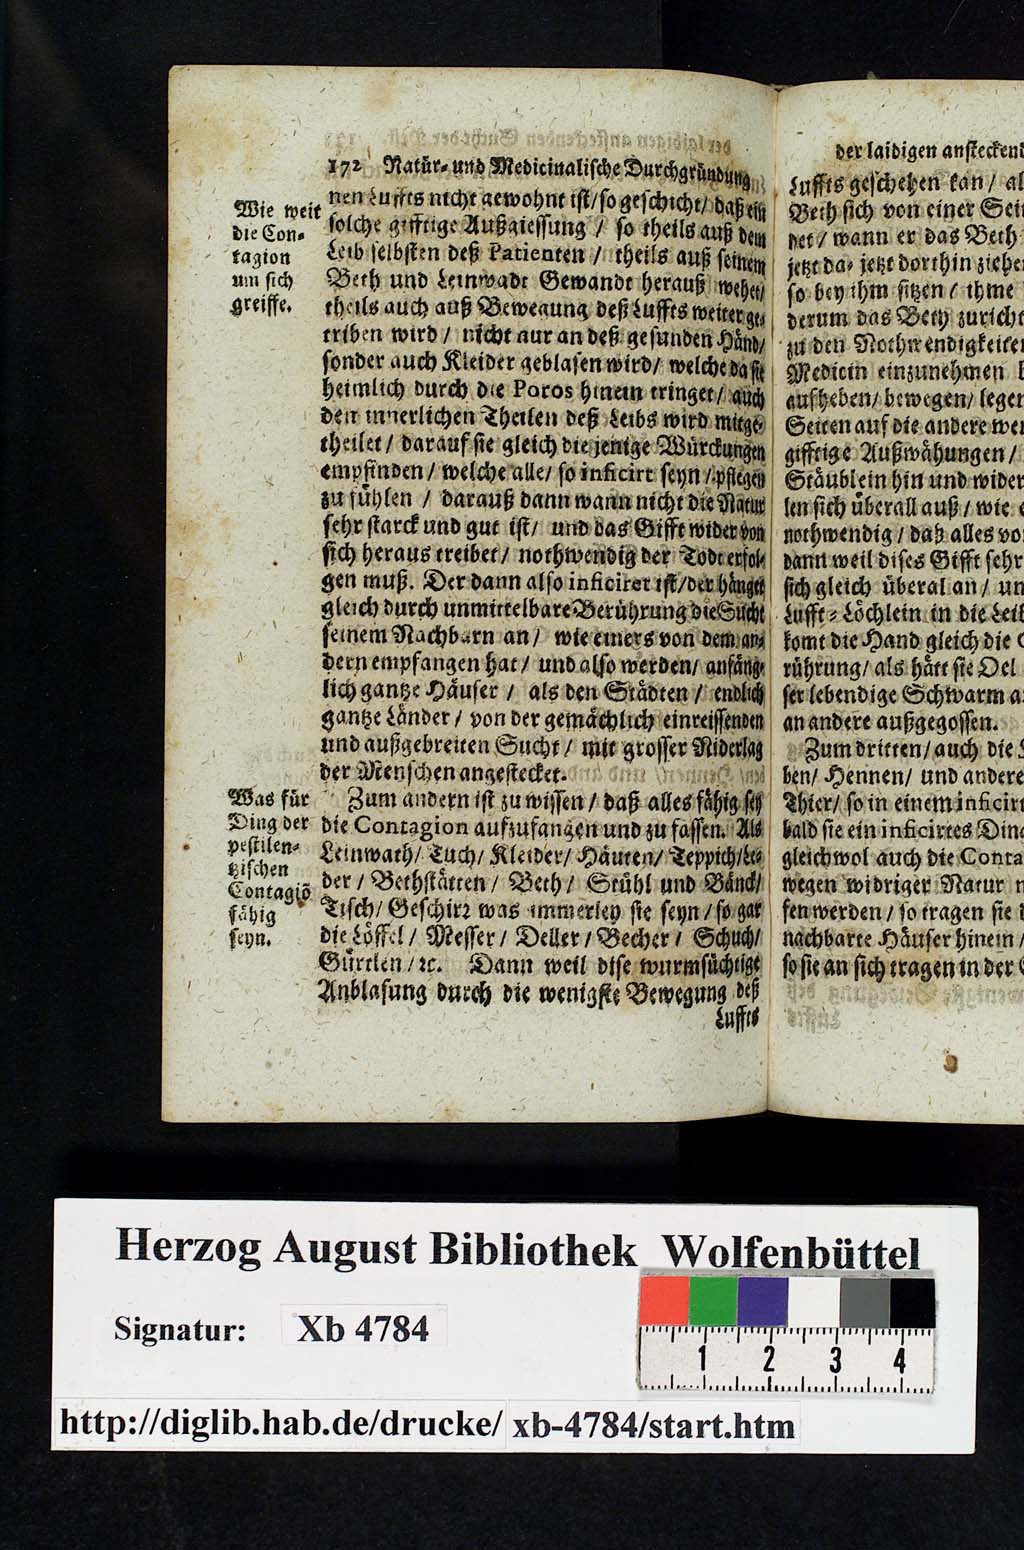 172 Natür- und Medicinalische Durchgründung
nen Luffts nicht gewohnt ist/ so geschicht/ daß ein
solche gifftige Außgiessung / so theils auß dem
Leib selbsten deß Patienten / theils auß seinem
Beth und Leinwadt Gewandt herauß wehet/
theils auch auß Bewegung deß Luffts weiter ge-
triben wird / nicht nur an deß gesunden Händ/
sonder auch Kleider geblasen wird/ welche da sie
heimlich durch die Poros hinein tringet/ auch
den innerlichen Theilen deß Leibs wird mitge-
theilet / darauf sie gleich die jenige Würckungen
empfinden / welche alle/ so inficirt seyn / pflegen
zu fühlen / darauß dann wann nicht die Natur
sehr starck und gut ist/ und das Gifft wider von
sich heraus treibet / nothwendig der Todt erfol-
gen muß. Der dann also inficiret ist/ der hänget
gleich durch unmittelbare Berührung die Sucht
seinem Nachbarn an / wie einers von dem an-
dern empfangen hat/ und also werden/ anfäng-
lich gantze Häuser / als den Städten / endlich
gantze Länder / von der gemächlich einreissenden
und außgebreiten Sucht / mit grosser Niderlag
der Menschen angestecket.
Zum andern ist zu wissen / daß alles fähig sey
die Contagion aufzufangen und zu fassen. Als
Leinwath/ Tuch/ Kleider/ Häuten/ Teppich/ Le-
der / Bethstätten / Beth / Stühl und Bänck/
Tisch/ Geschirr was immerley sie seyn / so gar
die Löffel / Messer / Deller / Becher / Schuch/
Gürtlen / ꝛc. Dann weil dise wurmsüchtige
Anblasung durch die wenigste Bewegung deß
Luffts
Wie weit
die Con-
tagion
um sich
greiffe.
Was für
Ding der
pestilen-
tzischen
Contagiõ
fähig
seyn.
der laidigen anstecken
Luffts geschehen kan / al
Beth sich von einer Seit
det / wann er das Beth
jetzt da- jetzt dorthin ziehe
so bey ihm sitzen / ihme
derum das Beth zuricht
zu den Nothwendigkeiten
Medicin einzunehmen
aufheben/ bewegen/ legen
Seiten auf die andere wen
gifftige Außwähungen /
Stäublein hin und wider
len sich überall auß / wie
nothwendig / daß alles vo
dann weil dises Gifft sehr
sich gleich überal an / un
Lufft-Löchlein in die Leib
komt die Hand gleich die
rührung/ als hätt sie Oel
ser lebendige Schwarm a
an andere außgegossen.
Zum dritten/ auch die
ben/ Hennen/ und andere
Thier/ so in einem inficirt
bald sie ein inficirtes Ding
gleichwol auch die Conta
wegen widriger Natur n
fen werden / so tragen sie
nachbarte Häuser hinein /
so sie an sich tragen in der
Herzog August Bibliothek Wolfenbüttel
Signatur: Xb 4784
1 2 3 4
http://diglib.hab.de/drucke/ xb-4784/start.htm